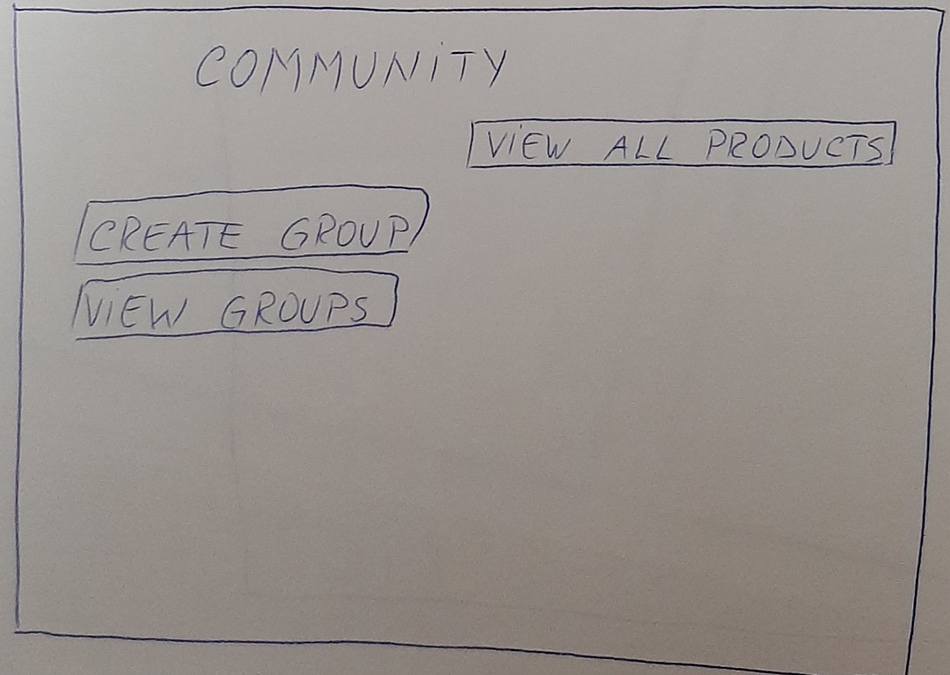 COMMUNITY
VIEW ALL PRODUCTS
CREATE GROUP
VIEW GROUPS